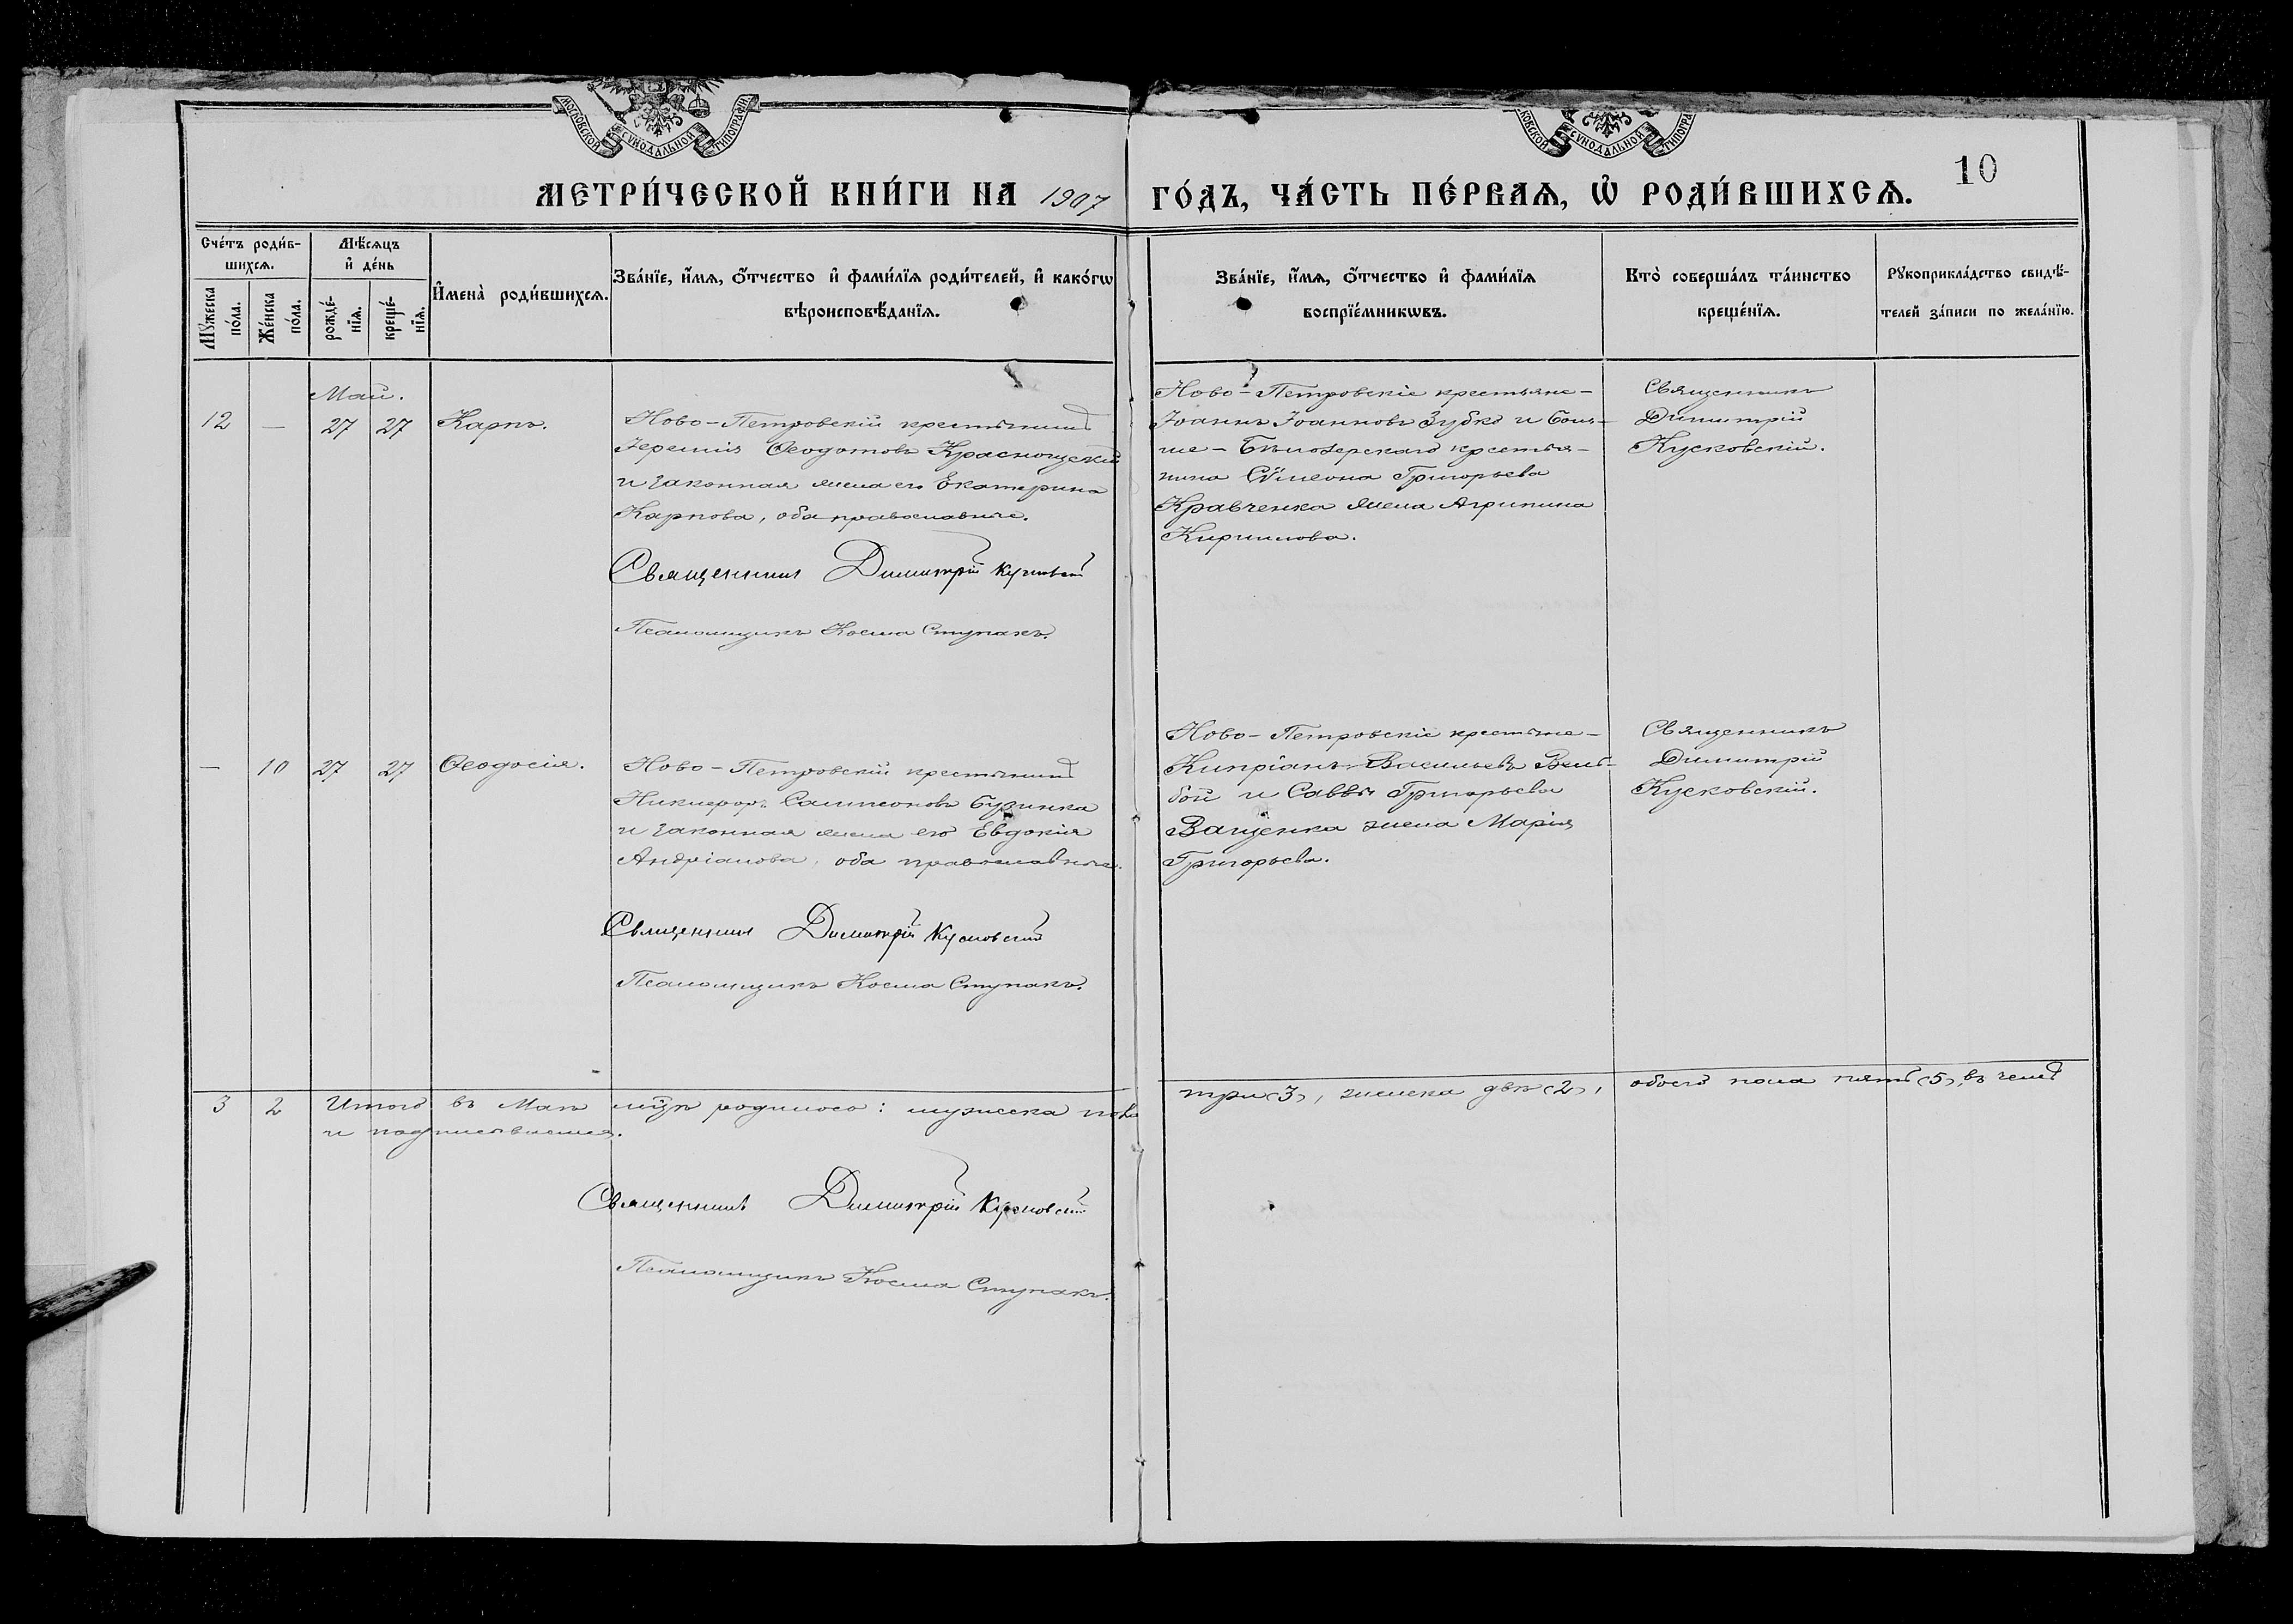 МОСКОВСКОЙ СѴНОДАЛЬНОЙ ТИПОГРАФІИ
КОВСКОЙ СѴНОДАЛЬНОЙ ТИПОГРА
10
МЕТРИ́ЧЕСКОЙ КНИ́ГИ НА 1907 ГО́ДЪ, ЧА́СТЬ ПЕ́РВАѦ, Ѽ РОДИ́ВШИХСѦ.
Сче́тъ роди́в-
шихсѧ.
Мѣ́сѧцъ
и҆ де́нь
И҆мена̀ роди́вшихсѧ.
Зва́нїе, и҆́мѧ, ѻ҆́тчество и҆ фами́лїѧ роди́телей, и҆ како́гѡ
вѣроисповѣ́данїѧ.
Мꙋ́жеска
по́ла.
Же́нска
по́ла.
рожде́-
нїѧ.
креще́-
нїѧ.
Зва́нїе, и҆́мѧ, ѻ҆́тчество и҆ фами́лїѧ
воспрїе́мникѡвъ.
Кто̀ соверша́лъ та́инство
креще́нїѧ.
Рꙋкоприкла́дство свидѣ́-
телей за́писи по жела́нїю.
Май.
12 — 27 27 Карпъ.
Ново-Петровскій крестьянинъ
Іеремія Ѳеодотовъ Красноцскій
и законная жена его Екатерина
Карпова, оба православные.
Священникъ Димитрій Кусковскій
Псаломщикъ Косма Ступакъ.
Ново-Петровскіе крестьяне-
Іоаннъ Іоанновъ Зубко и Боль-
ше-Бѣлозерскаго крестья-
нина Сѵмеона Григорьева
Кравченка жена Агрипина
Кириллова.
Священникъ
Димитрій
Кусковскій.
— 10 27 27 Ѳеодосія.
Ново-Петровскій крестьянинъ
Никифоръ Сампсоновъ Бузинка
и законная жена его Евдокія
Андріанова, оба православные.
Священникъ Димитрій Кусковскій
Псаломщикъ Косма Ступакъ.
Ново-Петровскіе крестьяне-
Кипріанъ Васильевъ
бой и Саввы Григорьева
Ващенка жена Марія
Григорьева.
Священникъ
Димитрій
Кусковскій.
3 2 Итого въ Маѣ мѣсцѣ родилось: мужеска пола три (3), женска двѣ (2), обоего пола пять (5), въ чемъ
и подписываемся.
Священникъ Димитрій Кусковскій
Псаломщикъ Косма Ступакъ.